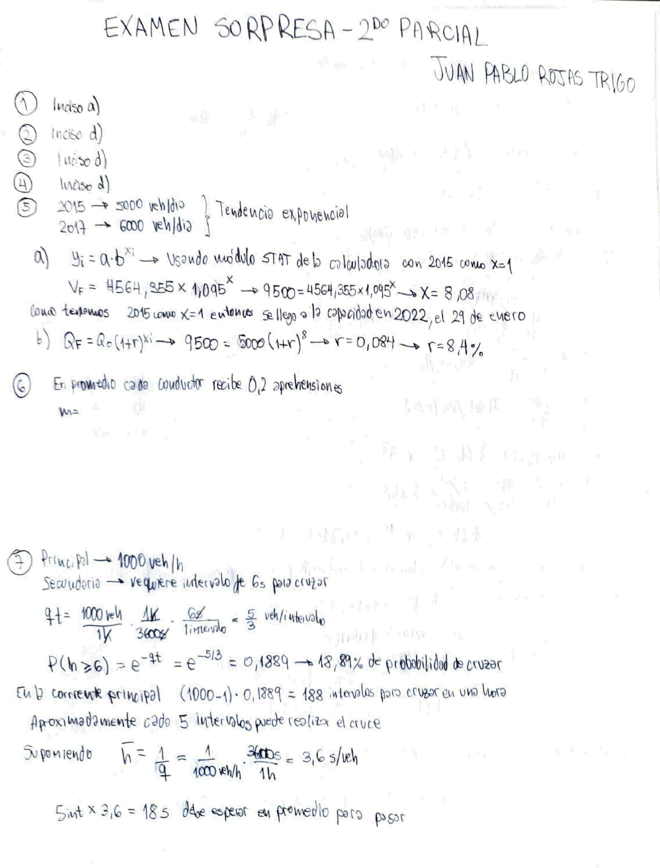 EXAMEN SORPRESA - 2DO PARCIAL
JUAN PABLO ROJAS TRIGO
① Inciso a)
② Inciso d)
③ Inciso d)
④ Inciso d)
⑤ 2015 → 5000 veh/dia
2017 → 6000 veh/dia } Tendencia exponencial
a) yi = a·b^xi → Usando módulo STAT de la calculadora con 2015 como x=1
VF = 4564,355 × 1,095^x → 9500 = 4564,355×1,095^x → x = 8,08
Como tenemos 2015 como x=1 entonces se llega a la capacidad en 2022, el 29 de enero
b) QF = Qo(1+r)^xi → 9500 = 5000(1+r)^8 → r = 0,084 → r = 8,4%
⑥ En promedio cada conductor recibe 0,2 aprehensiones
m=
⑦ Principal → 1000 veh/h
Secundaria → requiere intervalo de 6s para cruzar
qt = 1000 veh/1h · 1h/3600s · 6s/1intervalo = 5/3 veh/intervalo
P(h ≥ 6) = e^-qt = e^-5/3 = 0,1889 → 18,89% de probabilidad de cruzar
En la corriente principal (1000-1)·0,1889 = 188 intervalos para cruzar en una hora
Aproximadamente cada 5 intervalos puede realizar el cruce
Suponiendo h̄ = 1/q = 1/1000 veh/h · 3600s/1h = 3,6 s/veh
5int × 3,6 = 18 s debe esperar en promedio para pasar